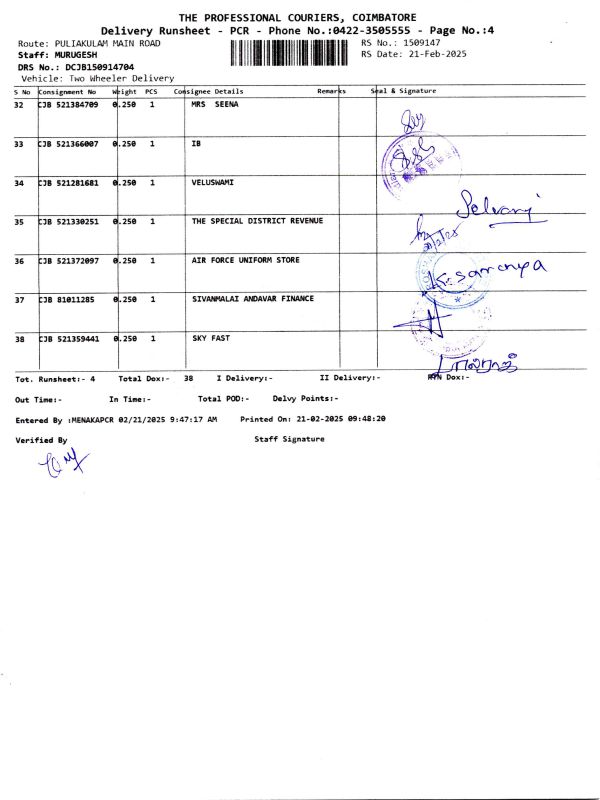 THE PROFESSIONAL COURIERS, COIMBATORE
Delivery Runsheet - PCR - Phone No.:0422-3505555 - Page No.:4
Route: PULIAKULAM MAIN ROAD RS No.: 1509147
Staff: MURUGESH RS Date: 21-Feb-2025
DRS No.: DCJB150914704
Vehicle: Two Wheeler Delivery
S No Consignment No Weight PCS Consignee Details Remarks Seal & Signature
32 CJB 521384709 0.250 1 MRS SEENA
33 CJB 521366007 0.250 1 IB
34 CJB 521281681 0.250 1 VELUSWAMI
Selvaraj
35 CJB 521330251 0.250 1 THE SPECIAL DISTRICT REVENUE
36 CJB 521372097 0.250 1 AIR FORCE UNIFORM STORE
K. Saranya
37 CJB 81011285 0.250 1 SIVANMALAI ANDAVAR FINANCE
38 CJB 521359441 0.250 1 SKY FAST
Tot. Runsheet:- 4 Total Dox:- 38 I Delivery:- II Delivery:- RTN Dox:-
Out Time:- In Time:- Total POD:- Delvy Points:-
Entered By :MENAKAPCR 02/21/2025 9:47:17 AM Printed On: 21-02-2025 09:48:20
Verified By Staff Signature